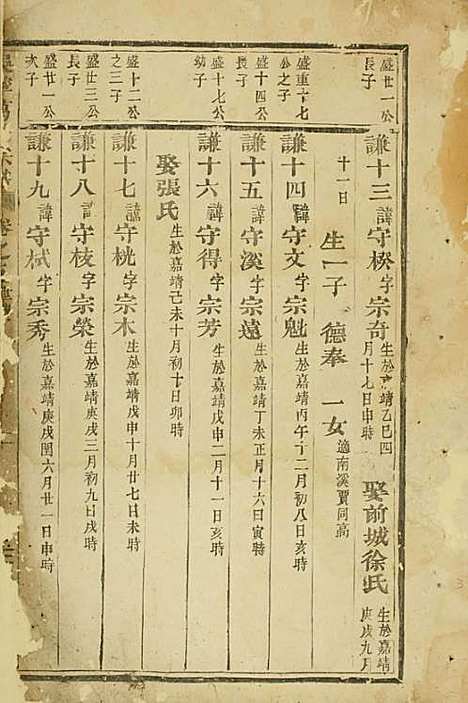 盛廿一公
長子
謙十三 諱守楑字宗奇 生於嘉靖乙巳四
月十七日申時 娶前城徐氏 生於嘉靖
庚戌九月
十一日 生一子 德奉 一女 適南溪賈同高
盛重十七
公之子
謙十四 諱守文字宗魁 生於嘉靖丙午十二月初八日亥時
盛十四公
長子
謙十五 諱守溪字宗遠 生於嘉靖丁未正月十六日寅時
盛十七公
幼子
謙十六 諱守得字宗芳 生於嘉靖戊申二月十一日亥時
娶張氏 生於嘉靖己未十月初十日卯時
盛十二公
之三子
謙十七 諱守桄字宗木 生於嘉靖戊申十月廿七日未時
盛廿三公
長子
謙十八 諱守枝字宗榮 生於嘉靖庚戌三月初九日戌時
盛廿一公
次子
謙十九 諱守栻字宗秀 生於嘉靖庚戌閏六月廿一日申時